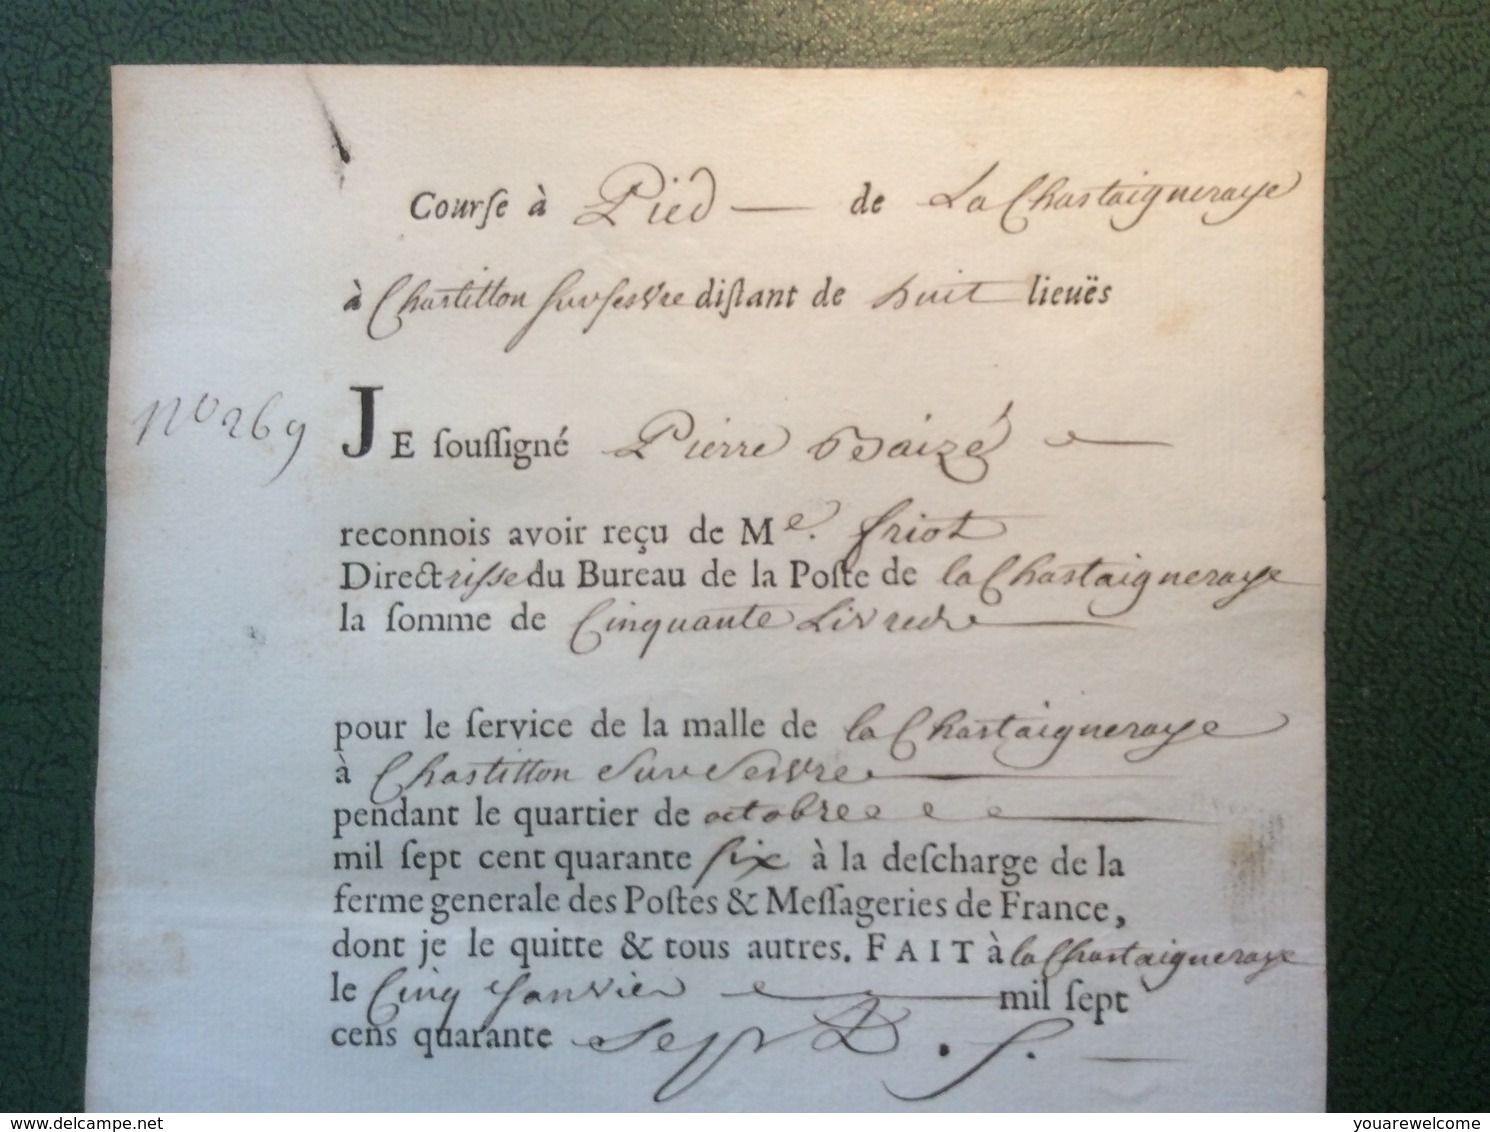 Courſe à Pied de La Chastaigneraye
à Chastillon Sur sesvre diſtant de huit lieuës
No 269
JE ſouſſigné Pierre Baizé
reconnois avoir reçu de Me. friot
Directrisse du Bureau de la Poſte de la Chastaigneraye
la ſomme de Cinquante Livres
pour le ſervice de la malle de la Chastaigneraye
à Chastillon Sur Sesvre
pendant le quartier de octobre
mil ſept cent quarante ſix à la deſcharge de la
ferme generale des Poſtes & Meſſageries de France,
dont je le quitte & tous autres. FAIT à la Chastaigneraye
le Cinq Janvier mil ſept
cens quarante Sept
delcampe.net
youarewelcome